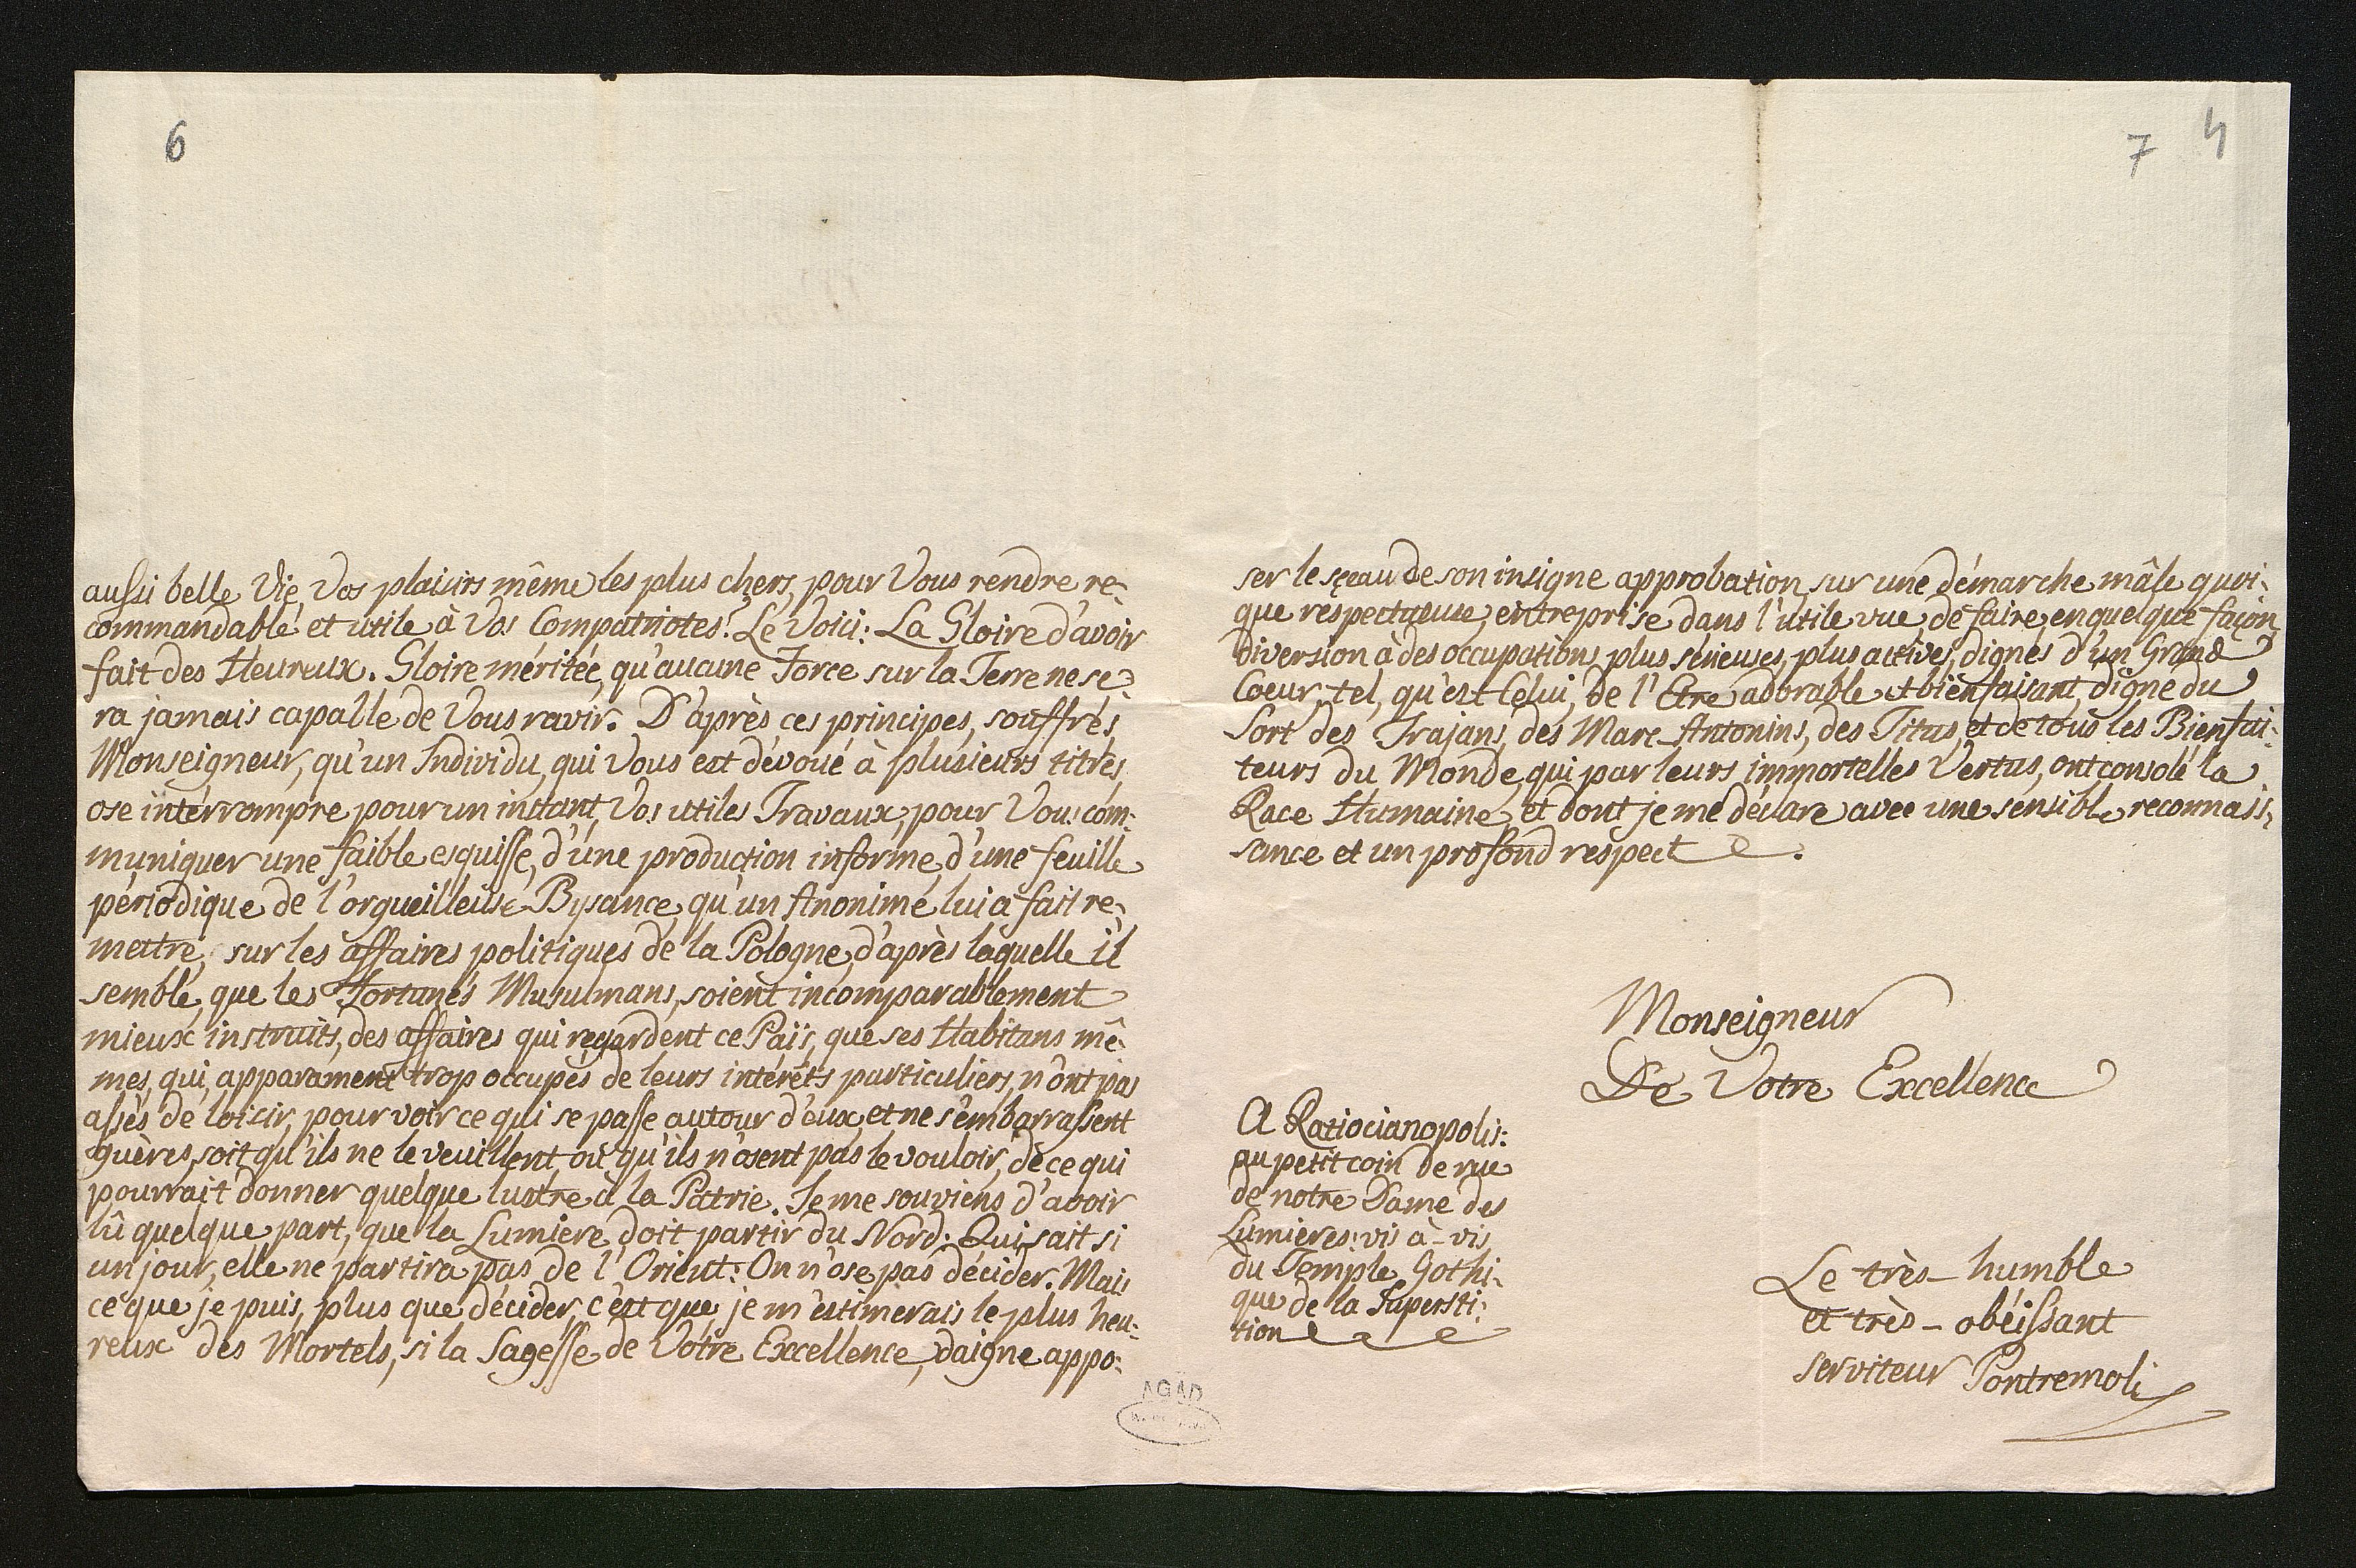 6
aussi belle Vie, Vos plaisirs même les plus chers, pour Vous rendre re-
commandable et utile à Vos Compatriotes? Le Voici: La Gloire d'avoir
fait des Heureux. Gloire méritée, qu'aucune Force sur la Terre ne se-
ra jamais capable de Vous ravir. D'après ces principes, souffrés,
Monseigneur, qu'un Individu, qui Vous est dévoué à plusieurs titres
ose intérrompre pour un instant, Vos utiles Travaux, pour Vous com-
muniquer une faible esquisse, d'une production informe, d'une feuille
périodique de l'orgueilleuse Bysance, qu'un Anonime lui a fait re-
mettre, sur les affaires politiques de la Pologne, d'après laquelle il
semble, que les Fortunés Musulmans, soient incomparablement
mieux instruits, des affaires qui regardent ce Païs, que ses Habitans mê-
mes, qui, apparament trop occupés de leurs intérêts particuliers, n'ont pas
assès de loisir, pour voir ce qui se passe autour d'eux, et ne s'embarrassent
guères, soit qu'ils ne le veuillent, ou qu'ils n'osent pas le vouloir, de ce qui
pourrait donner quelque lustre à la Patrie. Je me souviens d'avoir
lû quelque part, que la Lumière doit partir du Nord. Qui sait si
un jour, elle ne partira pas de l'Orient: On n'ose pas décider. Mais
ce que je puis, plus que décider, c'est que, je m'estimerais le plus heu-
reux des Mortels, si la Sagesse de Votre Excellence, daigne appo-
7 4
ser le sçeau de son insigne approbation, sur une démarche mâle quoi-
que respectueuse, entreprise dans l'utile vue, de faire en quelque façon,
diversion à des occupations plus sérieuses, plus actives, dignes d'un Grand
Coeur, tel, qu'est Celui, de l'Etre adorable et bienfaisant, digne du
Sort des Trajans, des Marc-Antonins, des Titus, et de tous les Bienfai-
teurs du Monde, qui par leurs immortelles Vertus, ont consolé la
Race Humaine, et dont je me déclare avec une sensible reconnais-
sance et un profond respect
Monseigneur
De Votre Excellence
A Ratiocianopolis:
au petit coin de rue
de notre Dame des
Lumières: vis à-vis
du Temple Gothi-
que de la Supersti-
tion
Le très-humble
et très-obéissant
serviteur Pontremoli
AGAD